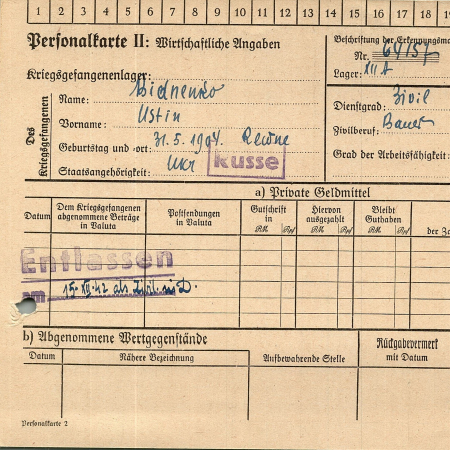 1 2 3 4 5 6 7 8 9 10 11 12 13 14 15 16 17 18 19
Personalkarte II: Wirtschaftliche Angaben
Beschriftung der Erkennungsma
Nr. 64157
Lager: XII A
Kriegsgefangenenlager:
Des Kriegsgefangenen
Name: Bidnenko
Vorname: Ustin
Geburtstag und -ort: 31.5.1904 Rewne
Staatsangehörigkeit: Ukr Russe
Dienstgrad: Zivil
Zivilberuf: Bauer
Grad der Arbeitsfähigkeit:
a) Private Geldmittel
Datum
Dem Kriegsgefangenen abgenommene Beträge in Valuta
Postsendungen in Valuta
Gutschrift in
RM. Rpf
Hiervon ausgezahlt
RM. Rpf
Bleibt Guthaben
RM. Rpf
der Za
Entlassen
am 15. XII. 42 als Zivil. in D.
b) Abgenommene Wertgegenstände
Datum
Nähere Bezeichnung
Aufbewahrende Stelle
Rückgabevermerk mit Datum
Personalkarte 2